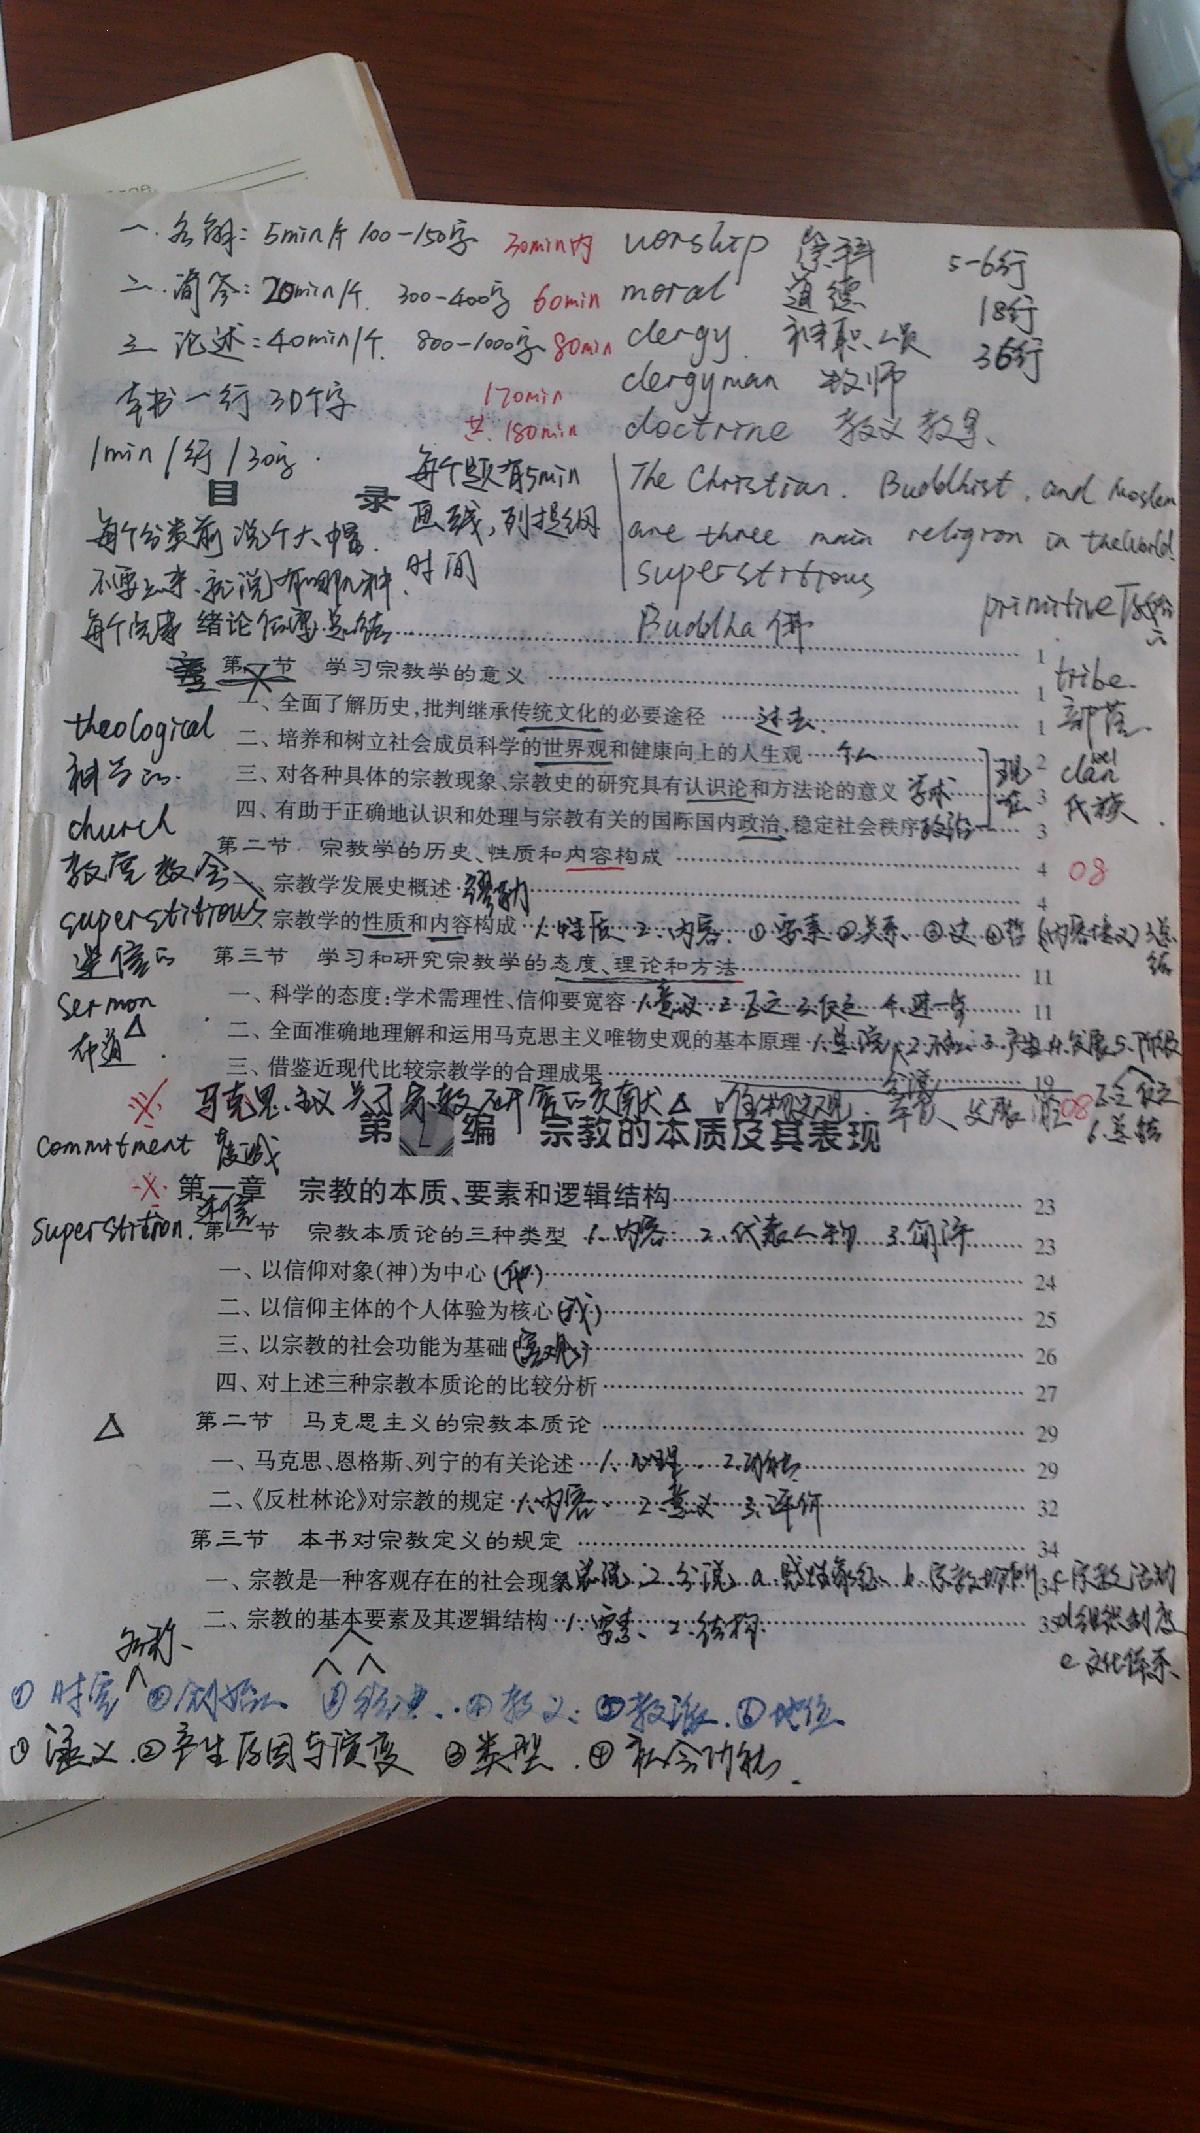 一.名解: 5min/个 100-150字 30min内 worship 崇拜 5-6行
二.简答: 20min/个. 300-400字 60min moral 道德 18行
三 论述: 40min/个. 800-1000字 80min clergy. 神职人员 36行
本书一行30个字 170min clergyman 牧师
共. 180min doctrine 教义 教条、
1min/行/30字.
每个题有5min
画线,列提纲
时间
The Christian. Buddhist. and Moslem
are three main religion in the world
superstitious
Buddha 佛
primitive
目 录
每个分类前说个大帽.
绪论 1
第一节 学习宗教学的意义 1
一、全面了解历史,批判继承传统文化的必要途径 过去. 1
二、培养和树立社会成员科学的世界观和健康向上的人生观 个人 2
三、对各种具体的宗教现象、宗教史的研究具有认识论和方法论的意义 学术 3
四、有助于正确地认识和处理与宗教有关的国际国内政治,稳定社会秩序 政治 3
现在
tribe.
部落.
clan
氏族.
theological
神学的.
church
教堂 教会
superstitious
迷信的
sermon
布道
第二节 宗教学的历史、性质和内容构成 4 08
一、宗教学发展史概述 缪勒 4
二、宗教学的性质和内容构成 1.性质 2.内容: ①要素 ②关系 ③史 ④哲
第三节 学习和研究宗教学的态度、理论和方法 11
一、科学的态度:学术需理性、信仰要宽容 1.意义 2.正之 3.反之 4.进一步 11
二、全面准确地理解和运用马克思主义唯物史观的基本原理 1.总说
三、借鉴近现代比较宗教学的合理成果 19
马克思主义关于宗教研究的贡献 唯物史观. 08
第 编 宗教的本质及其表现
commitment 虔诚
第一章 宗教的本质、要素和逻辑结构 23
superstition. 迷信
第一节 宗教本质论的三种类型 1.内容 2.代表人物 3.简评 23
一、以信仰对象(神)为中心 24
二、以信仰主体的个人体验为核心(我) 25
三、以宗教的社会功能为基础(客观) 26
四、对上述三种宗教本质论的比较分析 27
第二节 马克思主义的宗教本质论 29
一、马克思、恩格斯、列宁的有关论述 1.心理 2.功能 29
二、《反杜林论》对宗教的规定 1.内容 2.意义 3.评价 32
第三节 本书对宗教定义的规定 34
一、宗教是一种客观存在的社会现象 总说 2.分说 a.感性象征 b.宗教场所 c宗教活动
d组织制度
二、宗教的基本要素及其逻辑结构 1.要素、2.结构. 35
e文化体系、
名称、
①时空 ②创始人 ③经典. ④教义. ⑤教派. ⑥地位
①涵义.②产生原因与演变 ③类型.④社会功能.
1